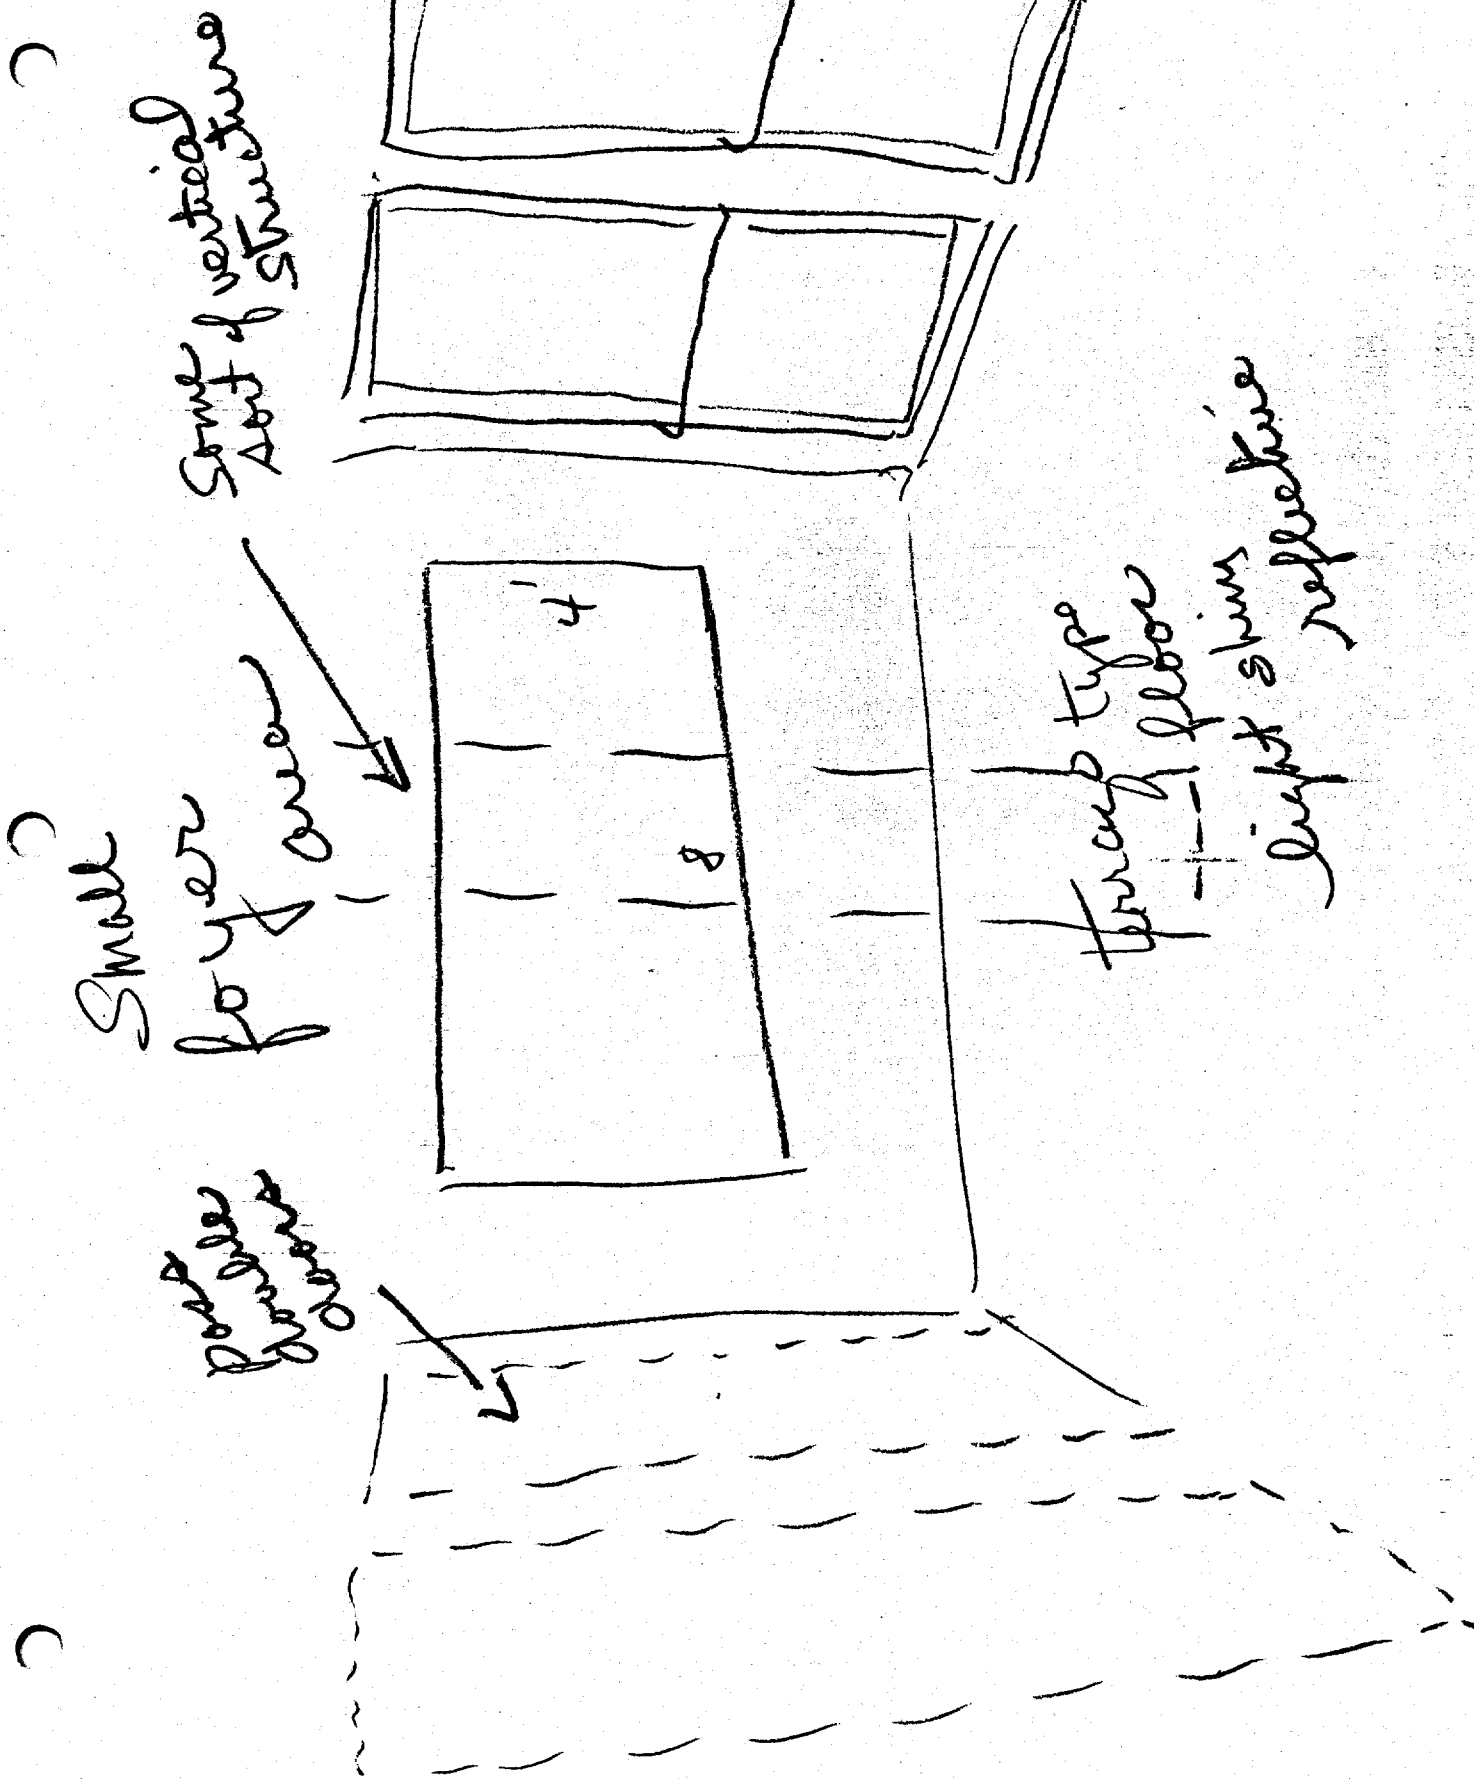 doors
Small
foyer
area
Some
sort of vertical
structure
4'
8
terrazo type
floor
light shins
reflective